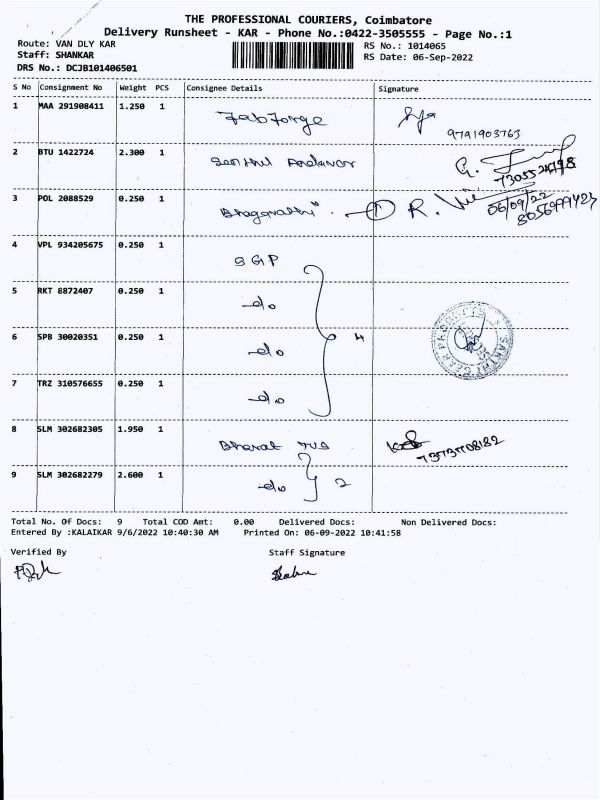 THE PROFESSIONAL COURIERS, Coimbatore
Delivery Runsheet - KAR - Phone No.:0422-3505555 - Page No.:1
Route: VAN DLY KAR
RS No.: 1014065
Staff: SHANKAR
RS Date: 06-Sep-2022
DRS No.: DCJB101406501
S No Consignment No Weight PCS Consignee Details Signature
1 MAA 291908411 1.250 1 Fabforge
9791903763
2 BTU 1422724 2.300 1 Senthil Andavar
G.
3 POL 2088529 0.250 1 Bhagavathi 1 R.
06/09/22
4 VPL 934205675 0.250 1 SGP
5 RKT 8872407 0.250 1 -do
6 SPB 30020351 0.250 1 -do 4
SAKTHI GEAR PRODUCTS
7 TRZ 310576655 0.250 1 -do
8 SLM 302682305 1.950 1 Bharat TVS
9 SLM 302682279 2.600 1 -do 2
Total No. Of Docs: 9 Total COD Amt: 0.00 Delivered Docs: Non Delivered Docs:
Entered By :KALAIKAR 9/6/2022 10:40:30 AM Printed On: 06-09-2022 10:41:58
Verified By Staff Signature